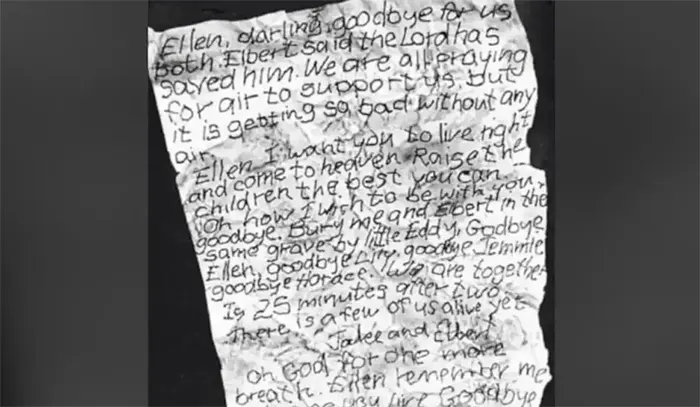 Ellen, darling, goodbye for us
both. Elbert said the Lord has
saved him. We are all praying
for air to support us, but
it is getting so bad without any
air.
Ellen I want you to live right
and come to heaven. Raise the
children the best you can.
Oh how I wish to be with you,
goodbye. Bury me and Elbert in the
same grave by little Eddy. Godbye
Ellen, goodbye Lily, goodbye Jemmie
goodbye Horace. We are together
Is 25 minutes after two.
There is a few of us alive yet
Jake and Elbert
Oh God for one more
breath. Ellen remember me
as you live Goodbye